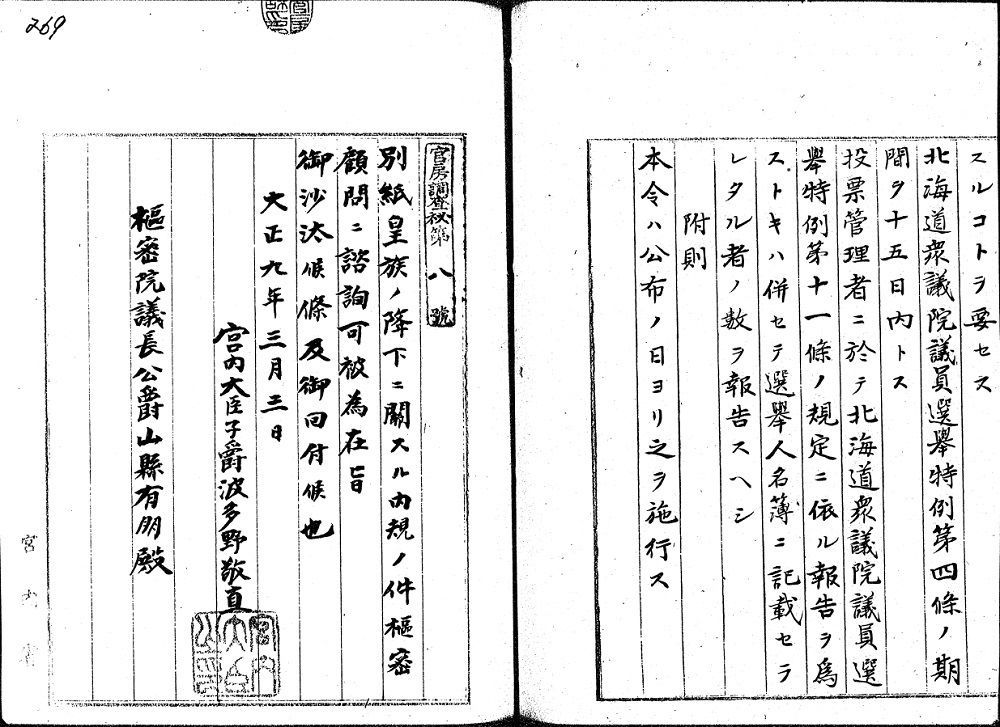 スルコトヲ要セス
北海道衆議院議員選擧特例第四條ノ期
間ヲ十五日內トス
投票管理者ニ於テ北海道衆議院議員選
擧特例第十一條ノ規定ニ依ル報告ヲ爲
ストキハ併セテ選擧人名簿ニ記載セラ
レタル者ノ数ヲ報告スヘシ
附則
本令ハ公布ノ日ヨリ之ヲ施行ス
269
官房調査秘第八號
別紙皇族ノ降下ニ關スル內規ノ件樞密
顧問ニ諮詢可被為在旨
御沙汰候條及御回付候也
大正九年三月三日
宮內大臣子爵波多野敬直
宮内大臣之印
樞密院議長公爵山縣有朋殿
宮內省